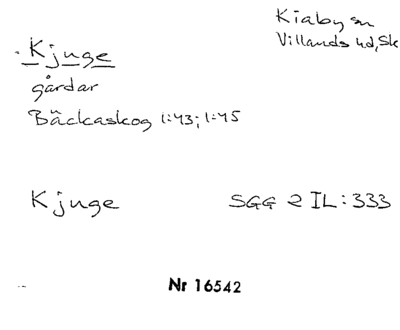 Kiaby sn
Villands hd, Sk
Kjuge
gårdar
Bäckaskog 1:43; 1:45
Kjuge SGG 2 IL:333
Nr 16542